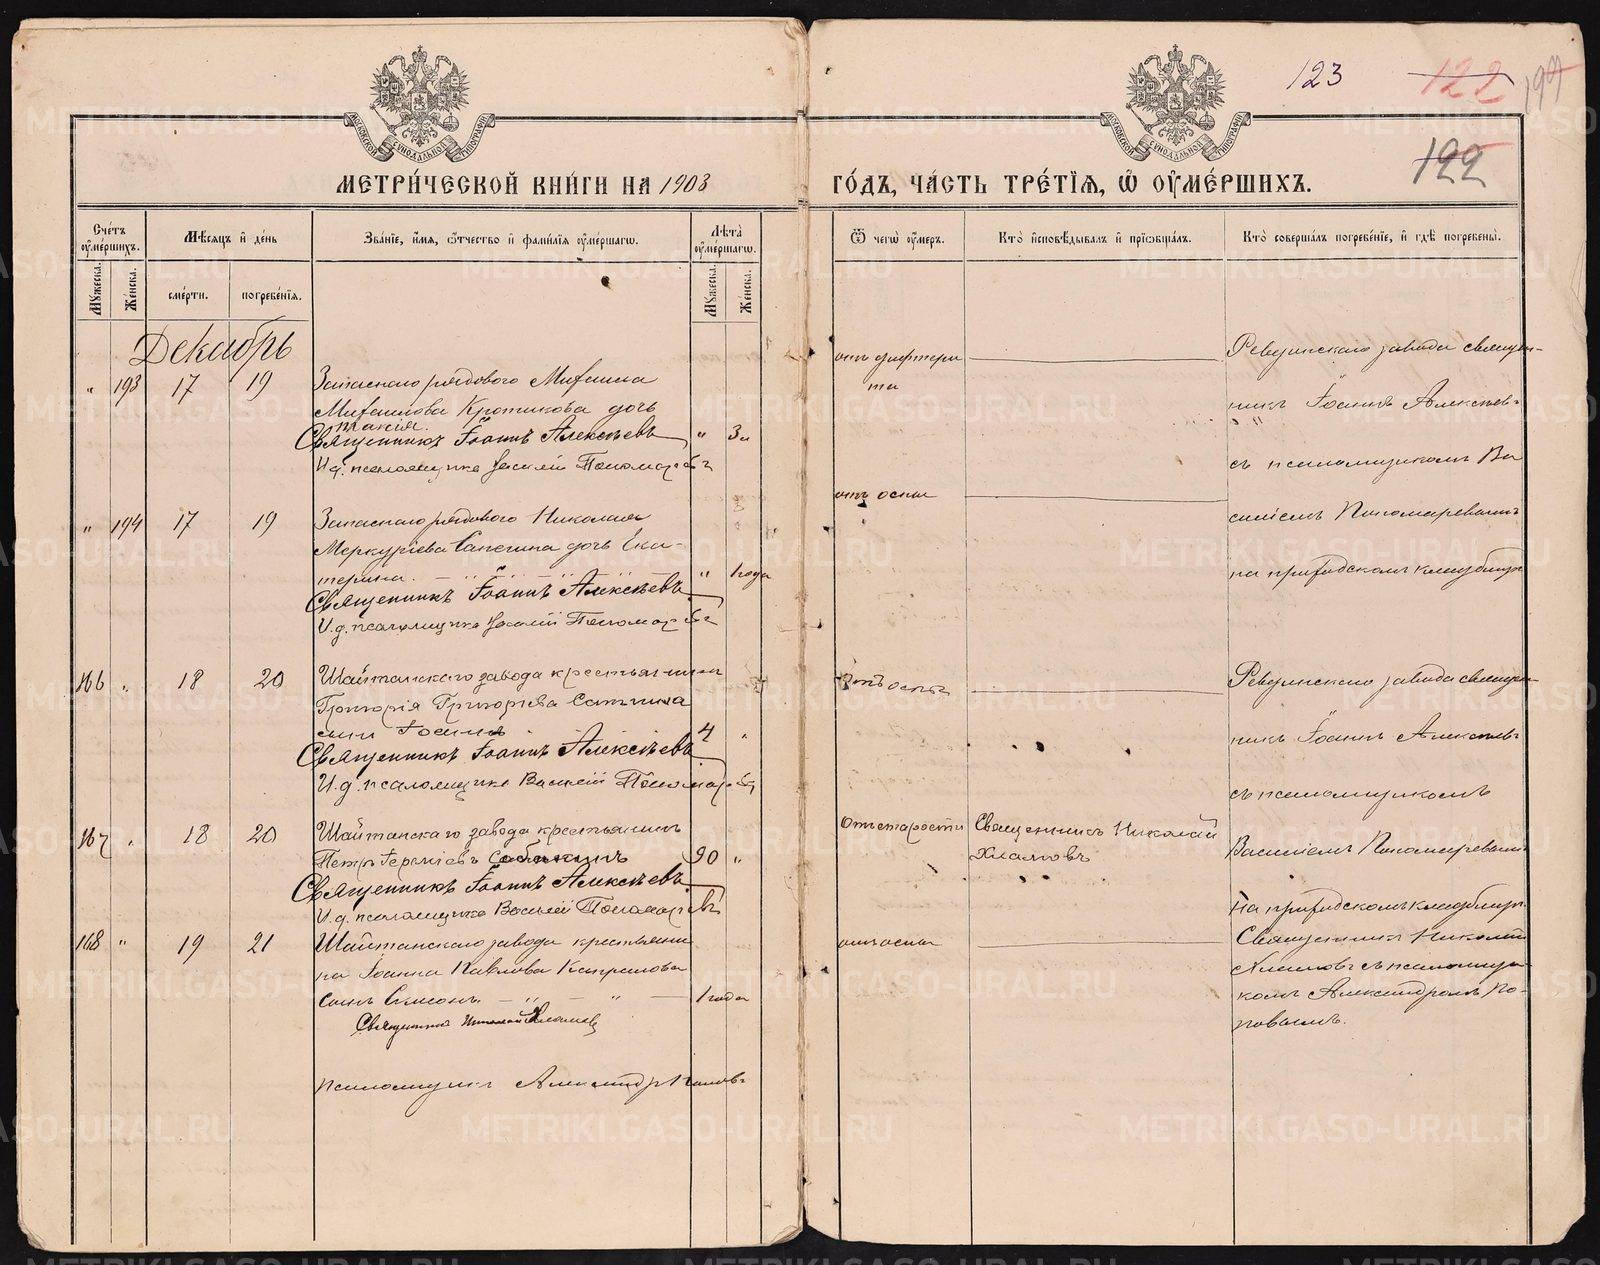 123
122
197
122
МОСКОВСКОЙ СѴНОДАЛЬНОЙ ТИПОГРАФІИ
МОСКОВСКОЙ СѴНОДАЛЬНОЙ ТИПОГРАФІИ
МЕТРИ́ЧЕСКОЙ КНИ́ГИ НА 1903
ГО́ДЪ, ЧА́СТЬ ТРЕ́ТІѦ, Ѿ ОУМЕ́РШИХЪ.
Сче́тъ оумершихъ.
Мꙋжеска.
Же́нска.
Мѣсяцъ и де́нь
сме́рти.
погребе́нія.
Зва́ніе, и҆мя, ѻ҆тчество и҆ фами́лія оуме́ршагѡ.
Лѣта̀ оуме́ршагѡ.
Мꙋжеска.
Же́нска.
Ѿ чегѡ̀ оу́меръ.
Кто̀ и҆сповѣ́дывалъ и҆ прїѡбща́лъ.
Кто̀ соверша́лъ погребе́ніе, и҆ гдѣ̀ погребены̀.
Декабрь
" 193 17 19
Запаснаго рядового Михаила
Михаилова Кротикова дочь
Священникъ Іоаннъ Алексѣевъ " 3
И. д. псаломщика Василій Пономаревъ
отъ дифтери
та
Ревдинскаго завода священ-
никъ Іоаннъ Алексѣевъ
съ псаломщикомъ Ва
силіемъ Пономаревымъ
на приходскомъ кладбищѣ
" 194 17 19
Запаснаго рядового Николая
Меркуріева дочь Ека-
терина. " 1 года
Священникъ Іоаннъ Алексѣевъ
И. д. псаломщика Василій Пономаревъ
отъ оспы
166 " 18 20
Шайтанскаго завода крестьянина
Григорія Григорьева
сынъ Іоаннъ 4 "
Священникъ Іоаннъ Алексѣевъ
И. д. псаломщика Василій Пономаревъ
Отъ оспы
Ревдинскаго завода священ-
никъ Іоаннъ Алексѣевъ
съ псаломщикомъ
Василіемъ Пономаревымъ
На приходскомъ кладбищѣ
167 " 18 20
Шайтанскаго завода крестьянинъ
Петръ 90 "
Священникъ Іоаннъ Алексѣевъ
И. д. псаломщика Василій Пономаревъ
Отъ старости
Священникъ Николай
Хламовъ
168 " 19 21
Шайтанскаго завода крестьяни
на Іоанна Павлова Капралова
сынъ Симеонъ 1 года
Священникъ Николай Хламовъ
псаломщикъ Александръ Поповъ
отъ оспы
Священникъ Николай
Хламовъ съ псаломщи-
комъ Александромъ По-
повымъ.
METRIKI.GASO-URAL.RU